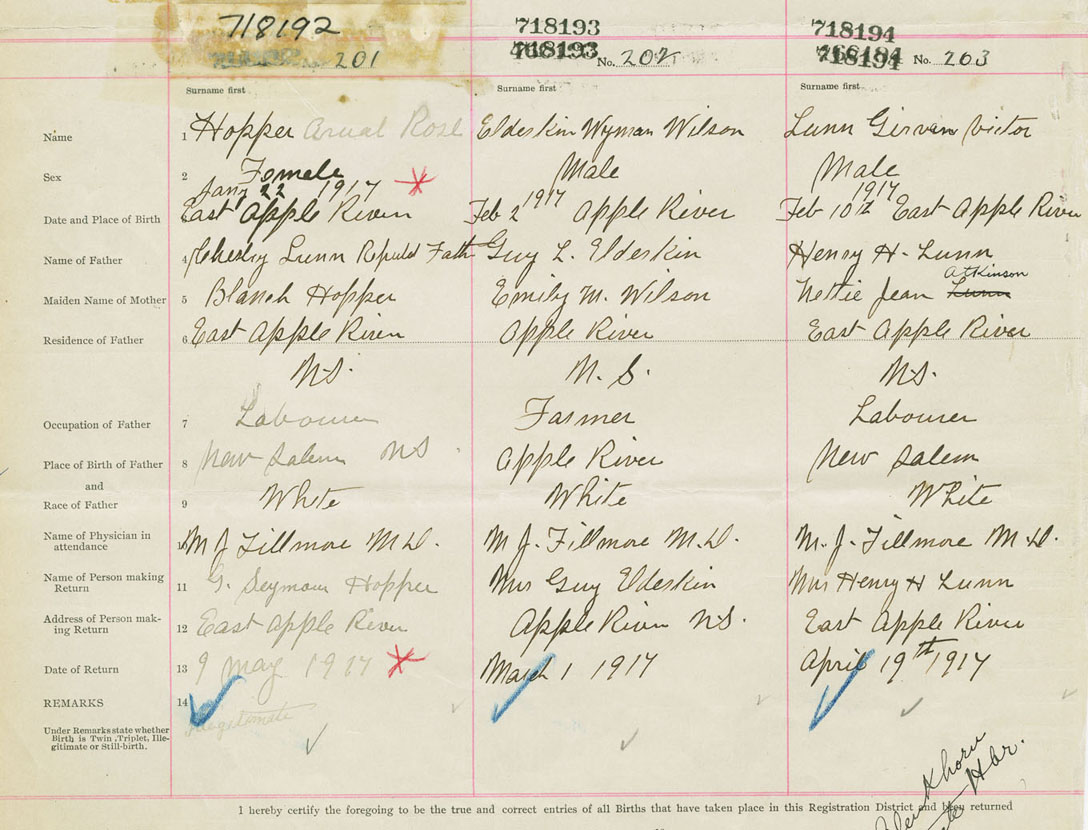 718192 718193 718194
201 No. 202 No. 203
Surname first Surname first Surname first
Name 1 Hopper Rose Elderkin Wyman Wilson Lunn Girvan Victor
Sex 2 Female Male Male
Jany 22 1917 * 1917 1917
Date and Place of Birth East Apple River Feb 2 Apple River Feb 10th East Apple River
Name of Father 4 Lunn Reputed Fath Guy L. Elderkin Henry H. Lunn
Atkinson
Maiden Name of Mother 5 Blanch Hopper Emily M. Wilson Nettie Jean Lunn
Residence of Father 6 East Apple River Apple River East Apple River
N.S. N. S. N.S.
Occupation of Father 7 Labourer Farmer Labourer
Place of Birth of Father 8 New Salem NS Apple River New Salem
and
Race of Father 9 White White White
Name of Physician in
attendance 10 M J Fillmore M.D. M J. Fillmore M.D. M. J. Fillmore M.D.
Name of Person making
Return 11 G. Seymour Hopper Mrs Guy Elderkin Mrs Henry H Lunn
Address of Person mak-
ing Return 12 East Apple River Apple River N.S. East Apple River
Date of Return 13 9 May 1917 * March 1 1917 April 19th 1917
REMARKS 14 Illegitimate
Under Remarks state whether
Birth is Twin, Triplet, Ille-
gitimate or Still-birth.
I hereby certify the foregoing to be the true and correct entries of all Births that have taken place in this Registration District and been returned